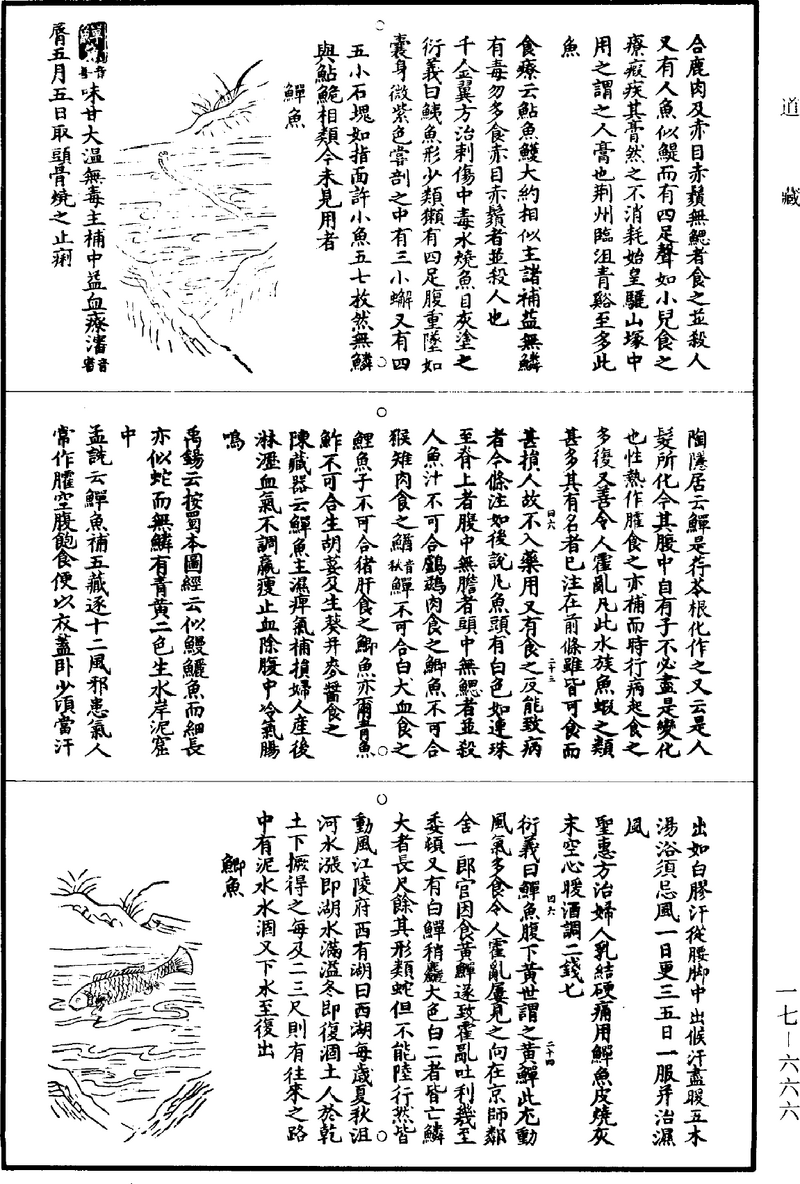 道藏
合鹿肉及赤目赤鬚無鰓者食之並殺人
又有人魚似鯷而有四足聲如小兒食之
療瘕疾其膏然之不消耗始皇驪山塚中
用之謂之人膏也荆州臨沮青谿至多此
魚
食療云鮎魚鱯大約相似主諸補益無鱗
有毒勿多食赤目赤鬚者並殺人也
千金翼方治刺傷中毒水燒魚目灰塗之
衍義曰鮧魚形少類獺有四足腹重墜如
囊身微紫色嘗剖之中有三小蠏又有四
五小石塊如指面許小魚五七枚然無鱗
與鮎鮠相類今未見用者
鱓魚
音善味甘大温無毒主補中益血療瀋音審
脣五月五日取頭骨燒之止痢
陶隱居云鱓是荇芩根化作之又云是人
髮所化今其腹中自有子不必盡是變化
也性熱作臛食之亦補而時行病起食之
多復又善令人霍亂凡此水族魚蝦之類
甚多其有名者已注在前條雖皆可食而
甚損人故不入藥用又有食之反能致病
者今條注如後説凡魚頭有白色如連珠
至脊上者腹中無膽者頭中無鰓者並殺
人魚汁不可合鸕鷀肉食之鯽魚不可合
猴雉肉食之鰌音秋鱓不可合白犬血食之
鯉魚子不可合猪肝食之鯽魚亦爾青魚
鮓不可合生胡荽及生葵并麥醬食之
陳藏器云鱓魚主濕痺氣補損婦人産後
淋瀝血氣不調羸瘦止血除腹中冷氣腸
鳴
禹錫云按蜀本圖經云似鰻鱺魚而細長
亦似蛇而無鱗有青黄二色生水岸泥窟
中
孟詵云鱓魚補五藏逐十二風邪患氣人
常作臛空腹飽食便以衣蓋卧少頃當汗
出如白膠汗從腰脚中出候汗盡暖五木
湯浴須忌風一日更三五日一服并治濕
風
聖惠方治婦人乳結硬痛用鱓魚皮燒灰
末空心暖酒調二錢匕
衍義曰鱓魚腹下黄世謂之黄鱓此尤動
風氣多食令人霍亂屢見之向在京師鄰
舍一郎官因食黄鱓遂致霍亂吐利幾至
委頓又有白鱓稍麤大色白二者皆亡鱗
大者長尺餘其形類蛇但不能陸行然皆
動風江陵府西有湖曰西湖每歲夏秋沮
河水漲即湖水滿溢冬即復涸土人於乾
土下撅得之每及二三尺則有往來之路
中有泥水水涸又下水至復出
鯽魚
四六
二十三
四六
二十四
一七—六六六